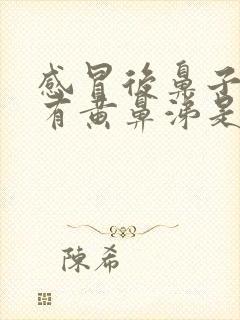 感冒後鼻子
有黄鼻涕是
陳希